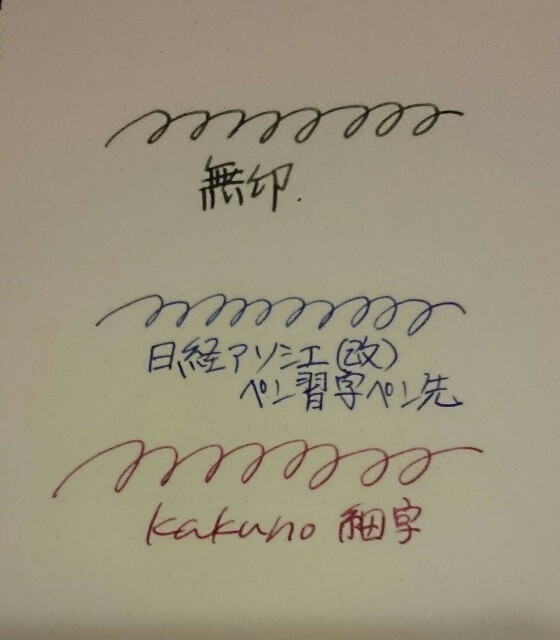 無印.
日経アソシエ(改)
ペン習字ペン先
kakuno 細字